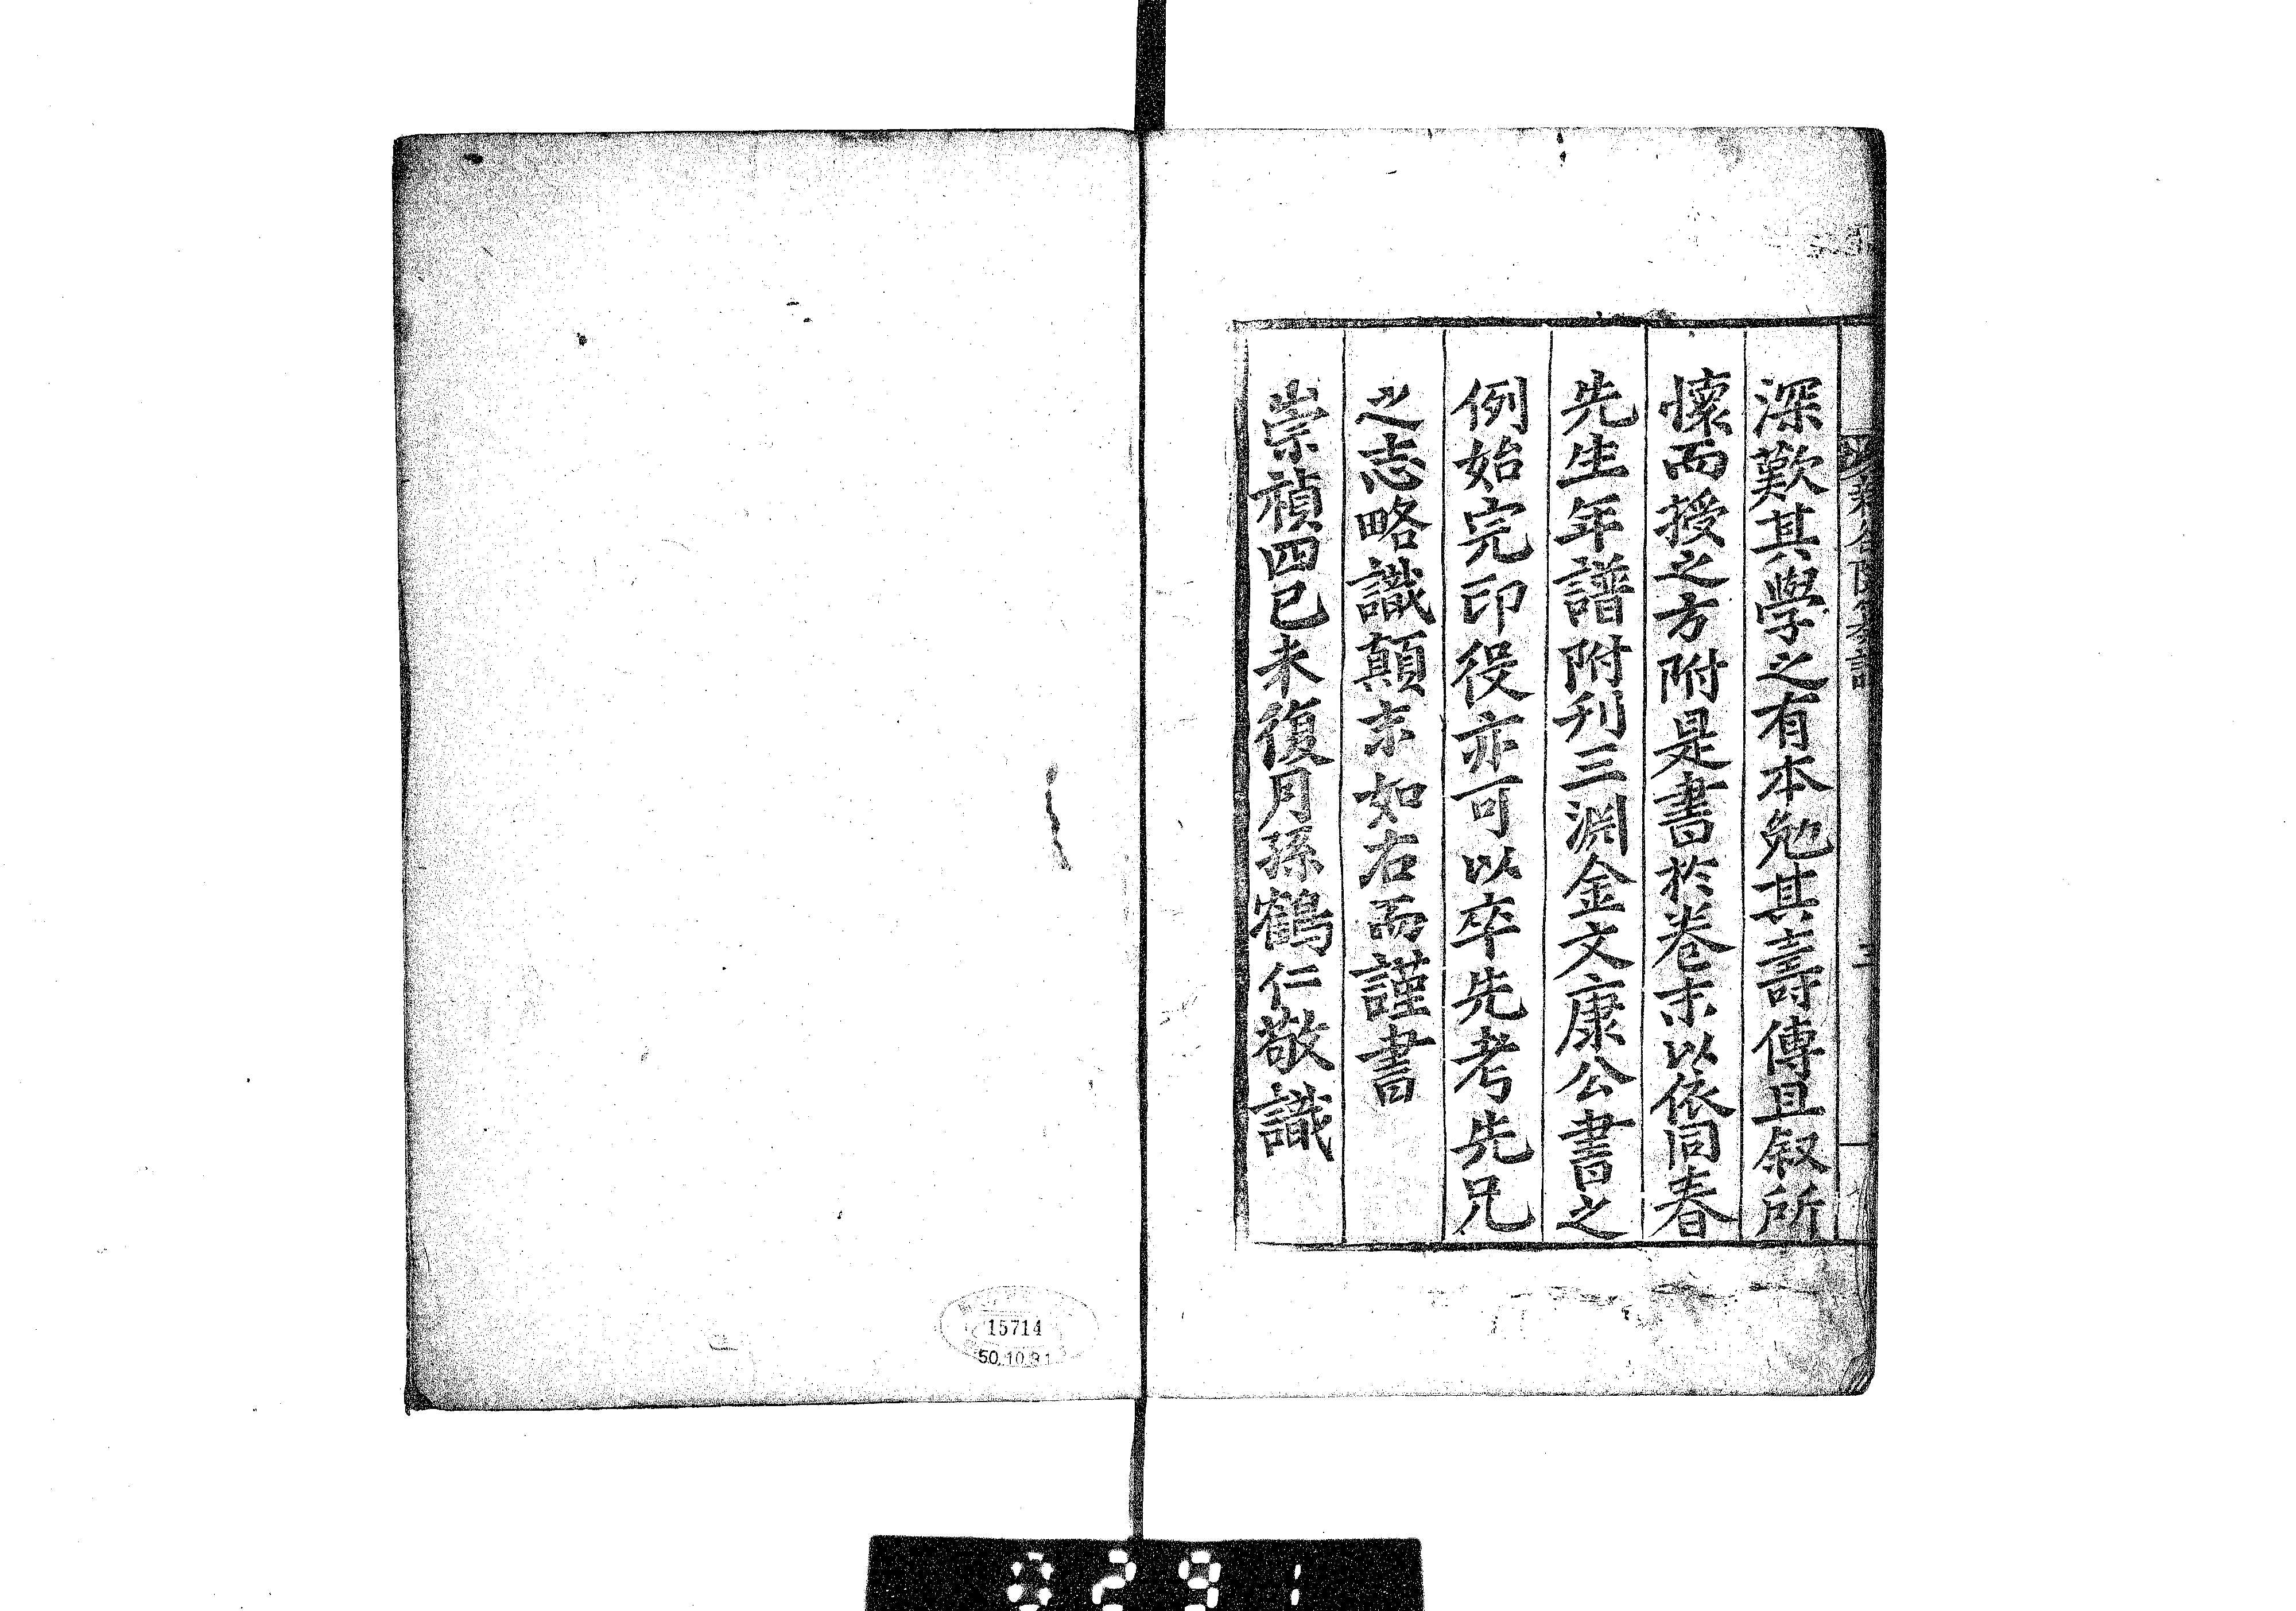 深歎其學之有本勉其壽傳且叙所
懷而授之方附是書於卷末以依同春
先生年譜附刋三淵金文康公書之
例始完印役亦可以卒先考先兄
之志略識顛末如右而謹書
崇禎四己未復月孫鶴仁敬識
15714
50.10.31
0291